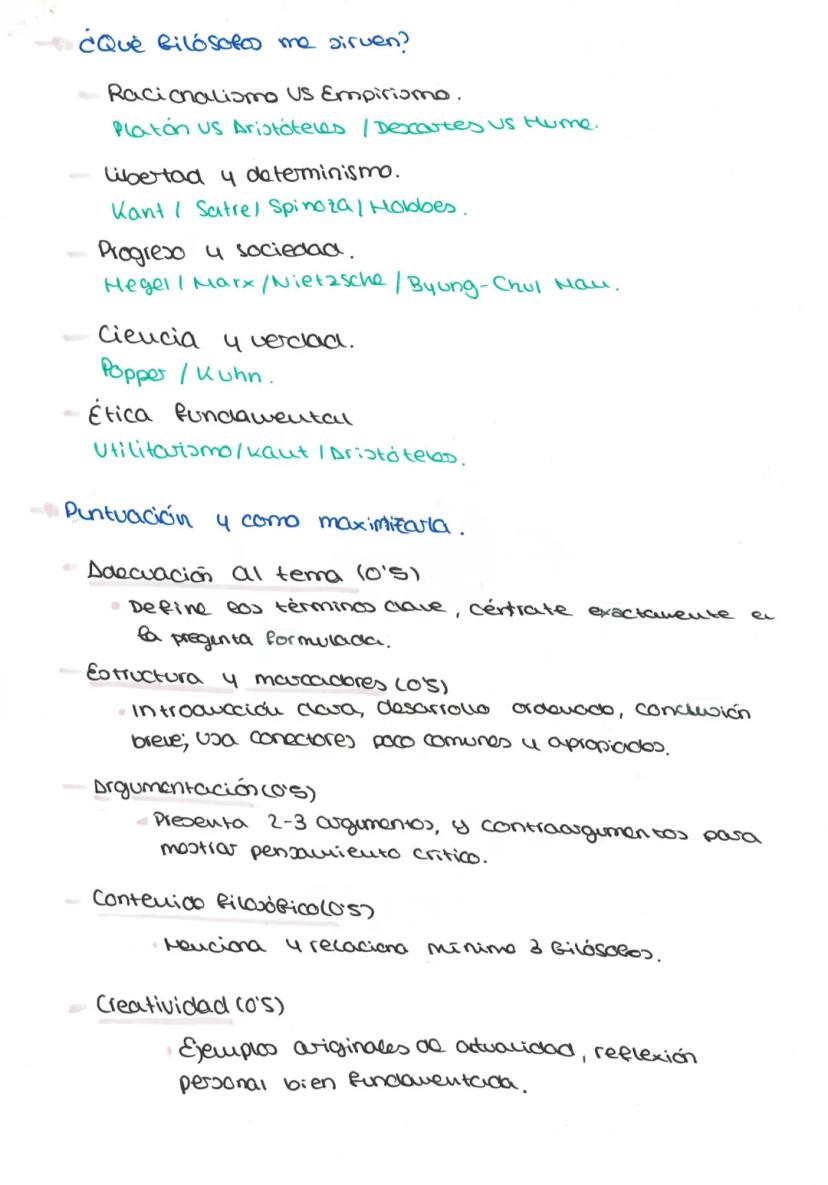 ¿Qué filósofos me sirven?
Racionalismo VS Empirismo.
Platón VS Aristóteles / Descartes VS Hume.
Libertad y determinismo.
Kant / Satre / Spinoza / Hobbes.
Progreso y sociedad.
Hegel / Marx / Nietzsche / Byung-Chul Han.
Ciencia y verdad.
Popper / Kuhn.
Ética fundamental
Utilitarismo / Kant / Aristóteles.
Puntuación y como maximizarla.
Adecuación al tema (0'5)
Define los términos clave, céntrate exactamente en
la pregunta formulada.
Estructura y marcadores (0'5)
Introducción clara, desarrollo ordenado, conclusión
breve; usa conectores poco comunes y apropiados.
Argumentación (0'5)
Presenta 2-3 argumentos, y contraargumentos para
mostrar pensamiento crítico.
Contenido filosófico (0'5)
Menciona y relaciona mínimo filósofos.
Creatividad (0'5)
Ejemplos originales de actualidad, reflexión
personal bien fundamentada.